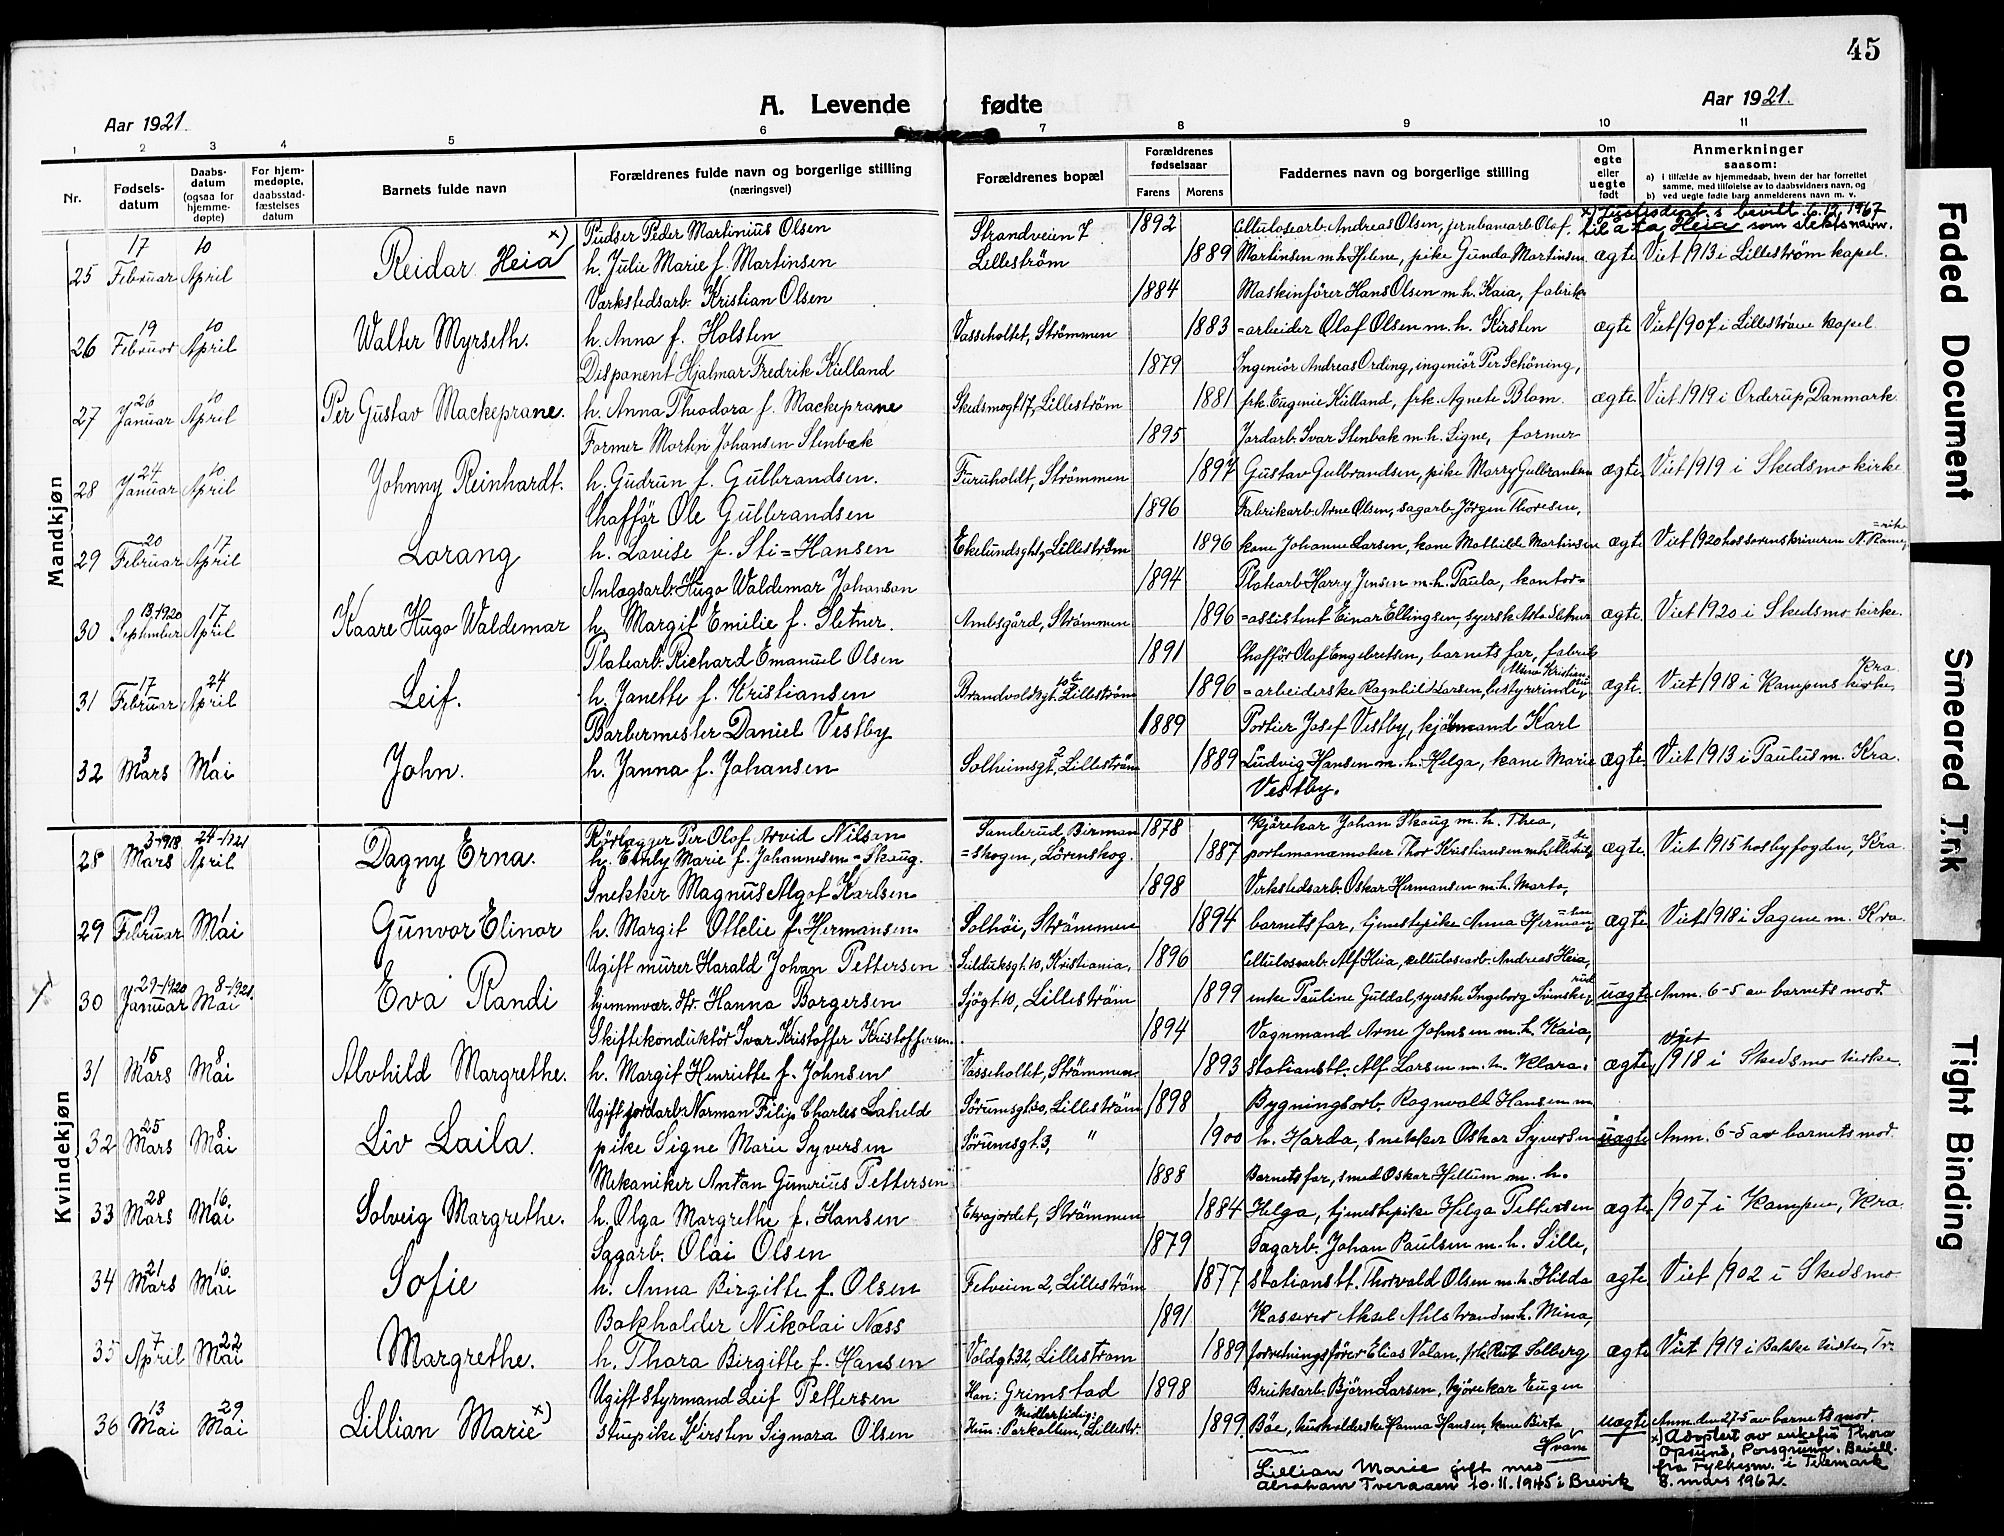 45
A. Levende fødte
Aar 1921.
Aar 1921.
1 2 3 4 5 6 7 8 9 10 11
Nr.
Fødsels-
datum
Daabs-
datum
(ogsaa for
hjemme-
døpte)
For hjem-
medøpte,
daabsstad-
fæstelses
datum
Barnets fulde navn
Forældrenes fulde navn og borgerlige stilling
(næringsvei)
Forældrenes bopæl
Forældrenes
fødselsaar
Farens Morens
Faddernes navn og borgerlige stilling
Om
egte
eller
uegte
født
Anmerkninger
saasom:
a) i tilfælde av hjemmedaab, hvem der har forrettet
samme, med tilføielse av to daabsvidners navn, og
b) ved uegte fødte barn anmelderens navn m. v.
Mandkjøn
x) Justisdept.s bevill. 6.12.1967
til å ta Heia som slektsnavn.
17 10 x) Pudser Peder Martinius Olsen Strandveien 7 1892 Cellulosearb. Andreas Olsen, jernbanearb. Olaf
25 Februar April Reidar Heia h. Julie Marie f. Martinsen Lilleström 1889 Martinsen m.h. Helene, pike Gunda Martinsen ægte Viet 1913 i Lilleström kapel.
Værkstedsarb. Kristian Olsen 1884 Maskinförer Hans Olsen m.h. Kaia, fabrik-
19 10
26 Februar April Walter Myrseth. h. Anna f. Holsten Vasseholtet, Strömmen 1883 =arbeider Olaf Olsen m. h. Kirsten ægte Viet 1907 i Lilleström kapel.
Disponent Hjalmar Fredrik Kielland 1879 Ingeniör Andreas Ording, ingeniör Per Schöning,
26 10
27 Januar April Per Gustav Mackeprane. h. Anna Theodora f. Mackeprane Skedsmogt 17, Lilleström 1881 frk. Eugenie Kielland, frk. Agnete Blom. ægte Viet 1919 i Orderup, Danmark.
Former Morten Johansen Stenbæk 1895 Jordarb. Ivar Stenbæk m.h. Signe, former
24 10
28 Januar April Johnny Reinhardt. h. Gudrun f. Gulbrandsen. Furuholdt, Strömmen 1897 Gustav Gulbrandsen, pike Marry Gulbrandsen ægte. Viet 1919 i Skedsmo kirke
Chafför Ole Gulbrandsen 1896 Fabrikarb. Arne Olsen, sagarb. Jörgen Thoresen,
20 17
29 Februar April Lorang h. Lovise f. Sti=Hansen Ekelundsgt 1, Lilleström 1896 kone Johanne Larsen, kone Mathilde Martinsen ægte Viet 1920 hos sorenskriveren N. Rome-
=rike
Anlægsarb. Hugo Waldemar Johansen 1894 Platearb. Harry Jensen m.h. Paula, kontor=
13.1920 17
30 September April Kaare Hugo Waldemar h. Margit Emilie f. Sletner. Ambsgård, Strömmen 1896 =assistent Einar Ellingsen, syerske Asta Sletner ægte. Viet 1920 i Skedsmo kirke.
Platearb. Richard Emanuel Olsen 1891 Chafför Olaf Engebretsen, barnets far, fabrik
17 24
31 Februar April Leif. h. Janette f. Kristiansen Brandvoldsgt 10b Lilleström 1896 =arbeiderske Ragnhild Larsen, bestyrerinde, ægte. Viet 1918 i Kampens kirke, Kra
Barbermester Daniel Vestby 1889 Portier Josef Vestby, kjömand Karl
3 1
32 Mars Mai John. h. Janna f. Johansen Solheimsgt 2, Lilleström 1889 Ludvig Hansen m. h. Helga, kone Marie ægte. Viet 1913 i Paulus m. Kra.
Vestby.
Kvindekjøn
3-1918 24-1921 Rörlægger Per Olof Arvid Nilsen Sanderud, Birman 1878 Kjörekar Johan Skaug m. h. Thea,
28 Mars April Dagny Erna. h. Emly Marie f. Johannesen=Skaug. =skogen, Lörenskog. 1887 portemonæmaker Thor Kristiansen m.h. ægte. Viet 1915 hos byfogden, Kra.
Snekker Magnus Algot Karlsen 1898 Verkstedsarb. Oskar Hermansen m. h. Marta,
19 1
29 Februar Mai Gunvor Elinor h. Margit Ottelie f. Hermansen. Solhöi, Strömmen 1894 barnets far, tjenestepike Anna Herman=sen ægte Viet 1918 i Sagene m. Kra.
Ugift murer Harald Johan Pettersen Seilduksgt. 10, Kristiania, 1896 Cellulosearb. Alf Heia, cellulosearb. Andreas Heia,
29-1920 8-1921.
30 Januar Mai Eva Randi hjemmevær. dtr. Hanna Borgersen Sjögt 10, Lilleström 1899 enke Pauline Guldal, syerske Ingeborg Svenske-rud uægte Anm. 6-5 av barnets mod.
Skiftekonduktör Ivar Kristoffer Kristoffersen. 1894 Vognmand Arne Johnsen m. h. Kaia,
15 8 Viet
31 Mars Mai Alvhild Margrethe. h. Margit Henriette f. Johnsen Vasseholtet, Strömmen. 1893 stationstt. Alf Larsen m. h. Klara. ægte, 1918 i Skedsmo kirke.
Ugift jordarb. Norman Filip Charles Laheld Sörumsgt 20, Lilleström 1898 Bygningsarb. Ragnvald Hansen m
25 8
32 Mars Mai Liv Laila. pike Signe Marie Syversen Sörumsgt. 3, " 1900 h. Harda, snekker Oskar Syversen uægte Anm. 6-5 av barnets mod.
Mekaniker Anton Gunerius Pettersen 1888 Barnets far, smed Oskar Hellum m. h.
28 16
33 Mars Mai Solveig Margrethe. h. Olga Margrethe f. Hansen Evajordet, Strömmen 1884 Helga, tjenestepike Helga Pettersen ægte 1907 i Kampen, Kra.
Sagarb. Olai Olsen 1879 Sagarb. Johan Paulsen m. h. Sille,
21 16
34 Mars Mai Sofie h. Anna Birgitte f. Olsen Fetveien 2, Lilleström 1877 stationstt. Thorvald Olsen m. h. Hilda ægte Viet 1902 i Skedsmo
Bokholder Nikolai Næss 1891 Kasserer Aksel Ahlstrand m.h. Mina,
7 22
35 April Mai Margrethe. h. Thora Birgitte f. Hansen Voldgt 32, Lilleström 1889 forretningsförer Elias Volan, frk. Rut Solberg ægte Viet 1919 i Bakke kirke, Tr.
Ugift styrmand Leif Pettersen Han: Grimstad 1898 Bruksarb. Björn Larsen, kjörekar Eugen
13 29 Midlertidig:
36 Mai Mai Lillian Marie x) Stupike Kirsten Signora Olsen Hun: Parkalleen, Lillestr. 1899 Böe, husholderske Hanna Hansen, kone Birta uægte Anm. den 27.5 av barnets mod.
Hvam
x) Adoptert av enkefru Thora
Opsund, Porsgrunn. Bevill.
fra Fylkesm. i Telemark
8. mars 1962.
Lillian Marie gift med
Abraham Tveraaen 10.11.1945 i Brevik
Faded Document
Smeared Ink
Tight Binding